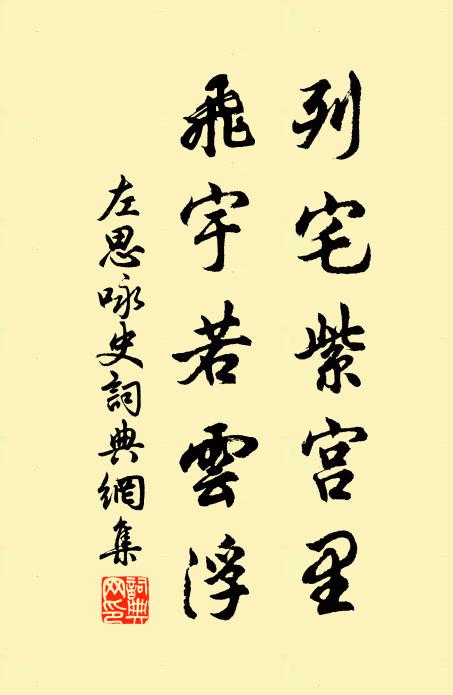 列宅紫宫里
飛宇若雲浮
左思咏史詞典網集
詞典
网印